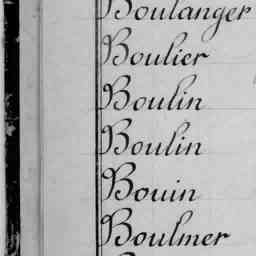 Boulanger
Boulier
Boulin
Boulin
Bouin
Boulmer